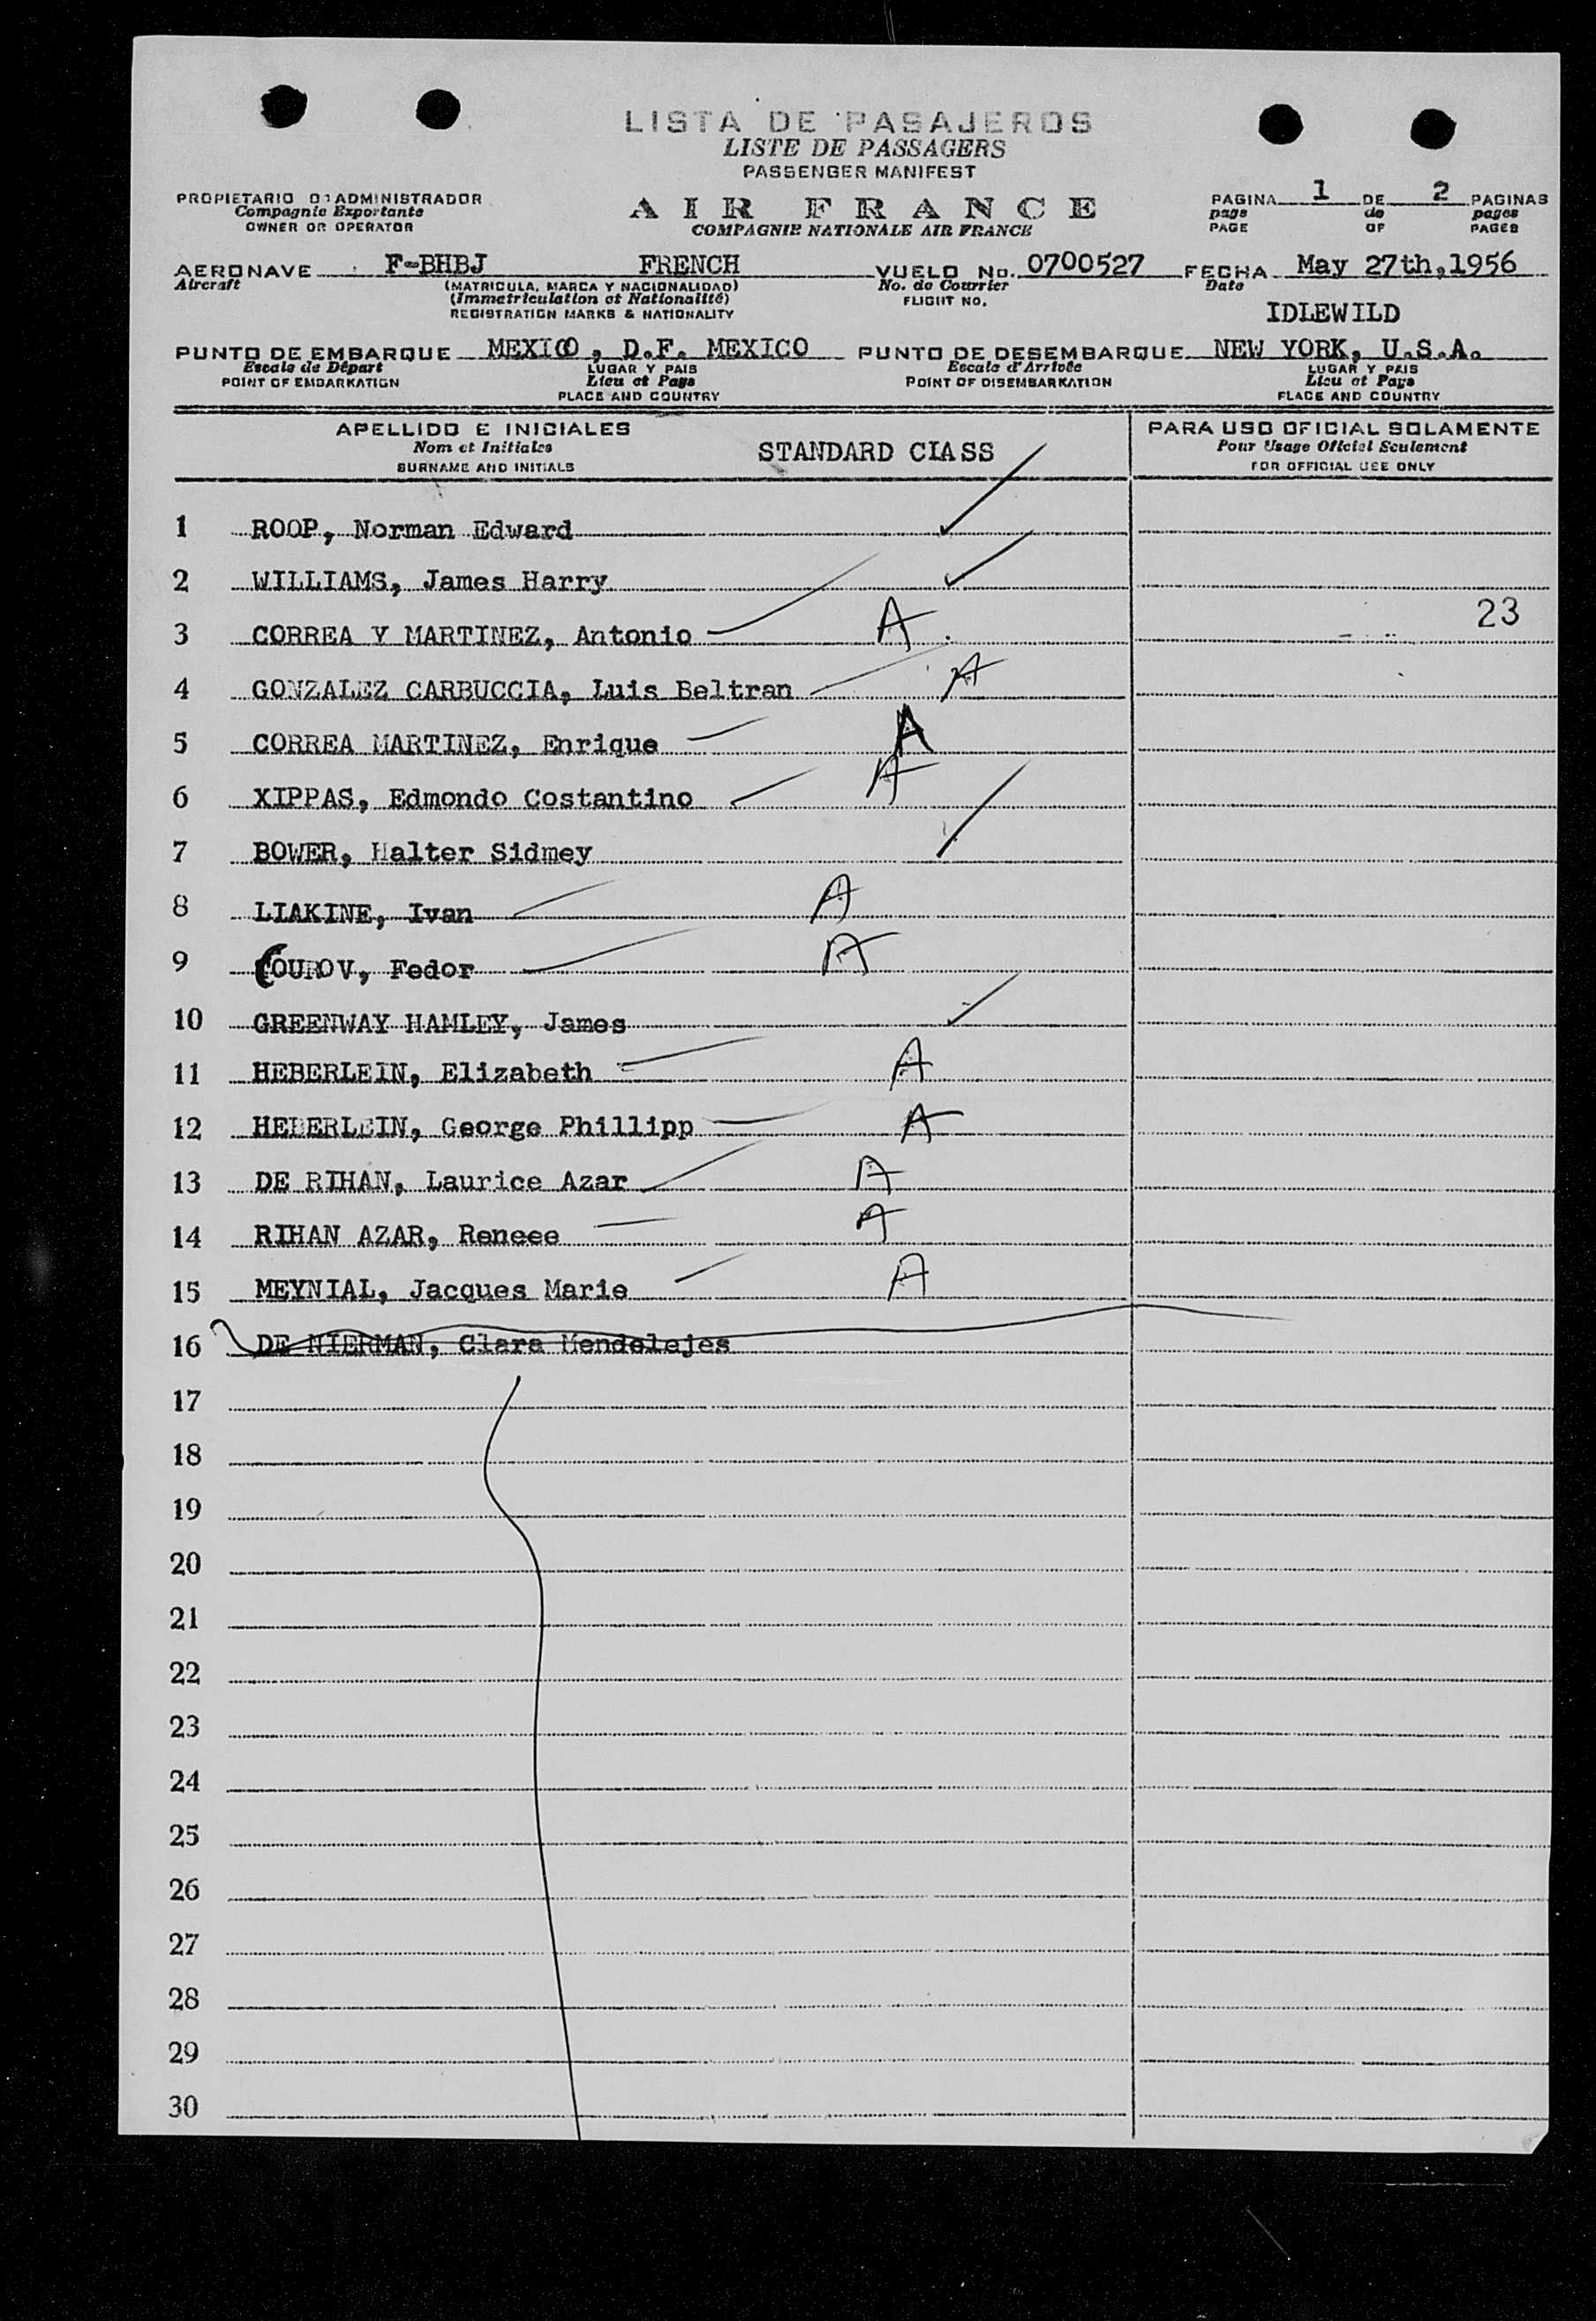 LISTA DE PASAJEROS
LISTE DE PASSAGERS
PASSENGER MANIFEST
PROPIETARIO O ADMINISTRADOR
Compagnie Exportante
OWNER OR OPERATOR
AIR FRANCE
COMPAGNIE NATIONALE AIR FRANCE
PAGINA 1 DE 2 PAGINAS
page de pages
PAGE OF PAGES
AERONAVE F-BHBJ FRENCH VUELO No. 0700527 FECHA May 27th,1956
Aircraft (MATRICULA, MARCA Y NACIONALIDAD) No. de Courrier Date
(Immatriculation et Nationalité) FLIGHT NO.
REGISTRATION MARKS & NATIONALITY
IDLEWILD
PUNTO DE EMBARQUE MEXICO, D.F. MEXICO PUNTO DE DESEMBARQUE NEW YORK, U.S.A.
Escale de Départ LUGAR Y PAIS Escale d'Arrivée LUGAR Y PAIS
POINT OF EMBARKATION Lieu et Pays POINT OF DISEMBARKATION Lieu et Pays
PLACE AND COUNTRY PLACE AND COUNTRY
APELLIDO E INICIALES PARA USO OFICIAL SOLAMENTE
Nom et Initiales STANDARD CLASS Pour Usage Officiel Seulement
SURNAME AND INITIALS FOR OFFICIAL USE ONLY
1 ROOP, Norman Edward
2 WILLIAMS, James Harry
3 CORREA Y MARTINEZ, Antonio A 23
4 GONZALEZ CARBUCCIA, Luis Beltran A
5 CORREA MARTINEZ, Enrique A
6 XIPPAS, Edmondo Costantino A
7 BOWER, Halter Sidmey
8 LIAKINE, Ivan A
9 Fedor A
10 GREENWAY HAMLEY, James
11 HEBERLEIN, Elizabeth A
12 HEBERLEIN, George Phillipp A
13 DE RIHAN, Laurice Azar A
14 RIHAN AZAR, Reneee A
15 MEYNIAL, Jacques Marie A
16 DE NIERMAN, Clara Mendelejes
17
18
19
20
21
22
23
24
25
26
27
28
29
30